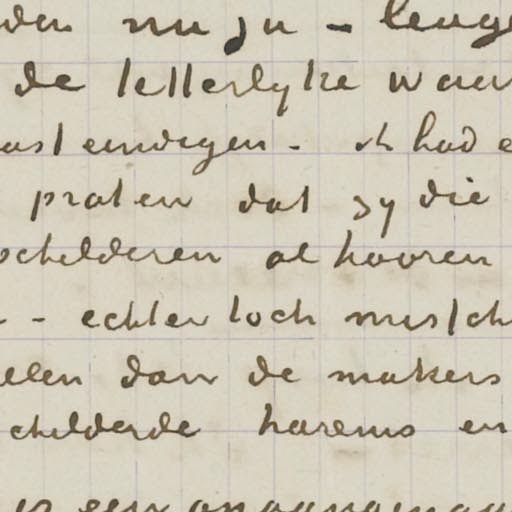 de letterlyke waar
vast eenvegen - ik had e
praten dat zy die
schilderen al hooren
- - echter toch missch
elen dan de makers
childerde harems en